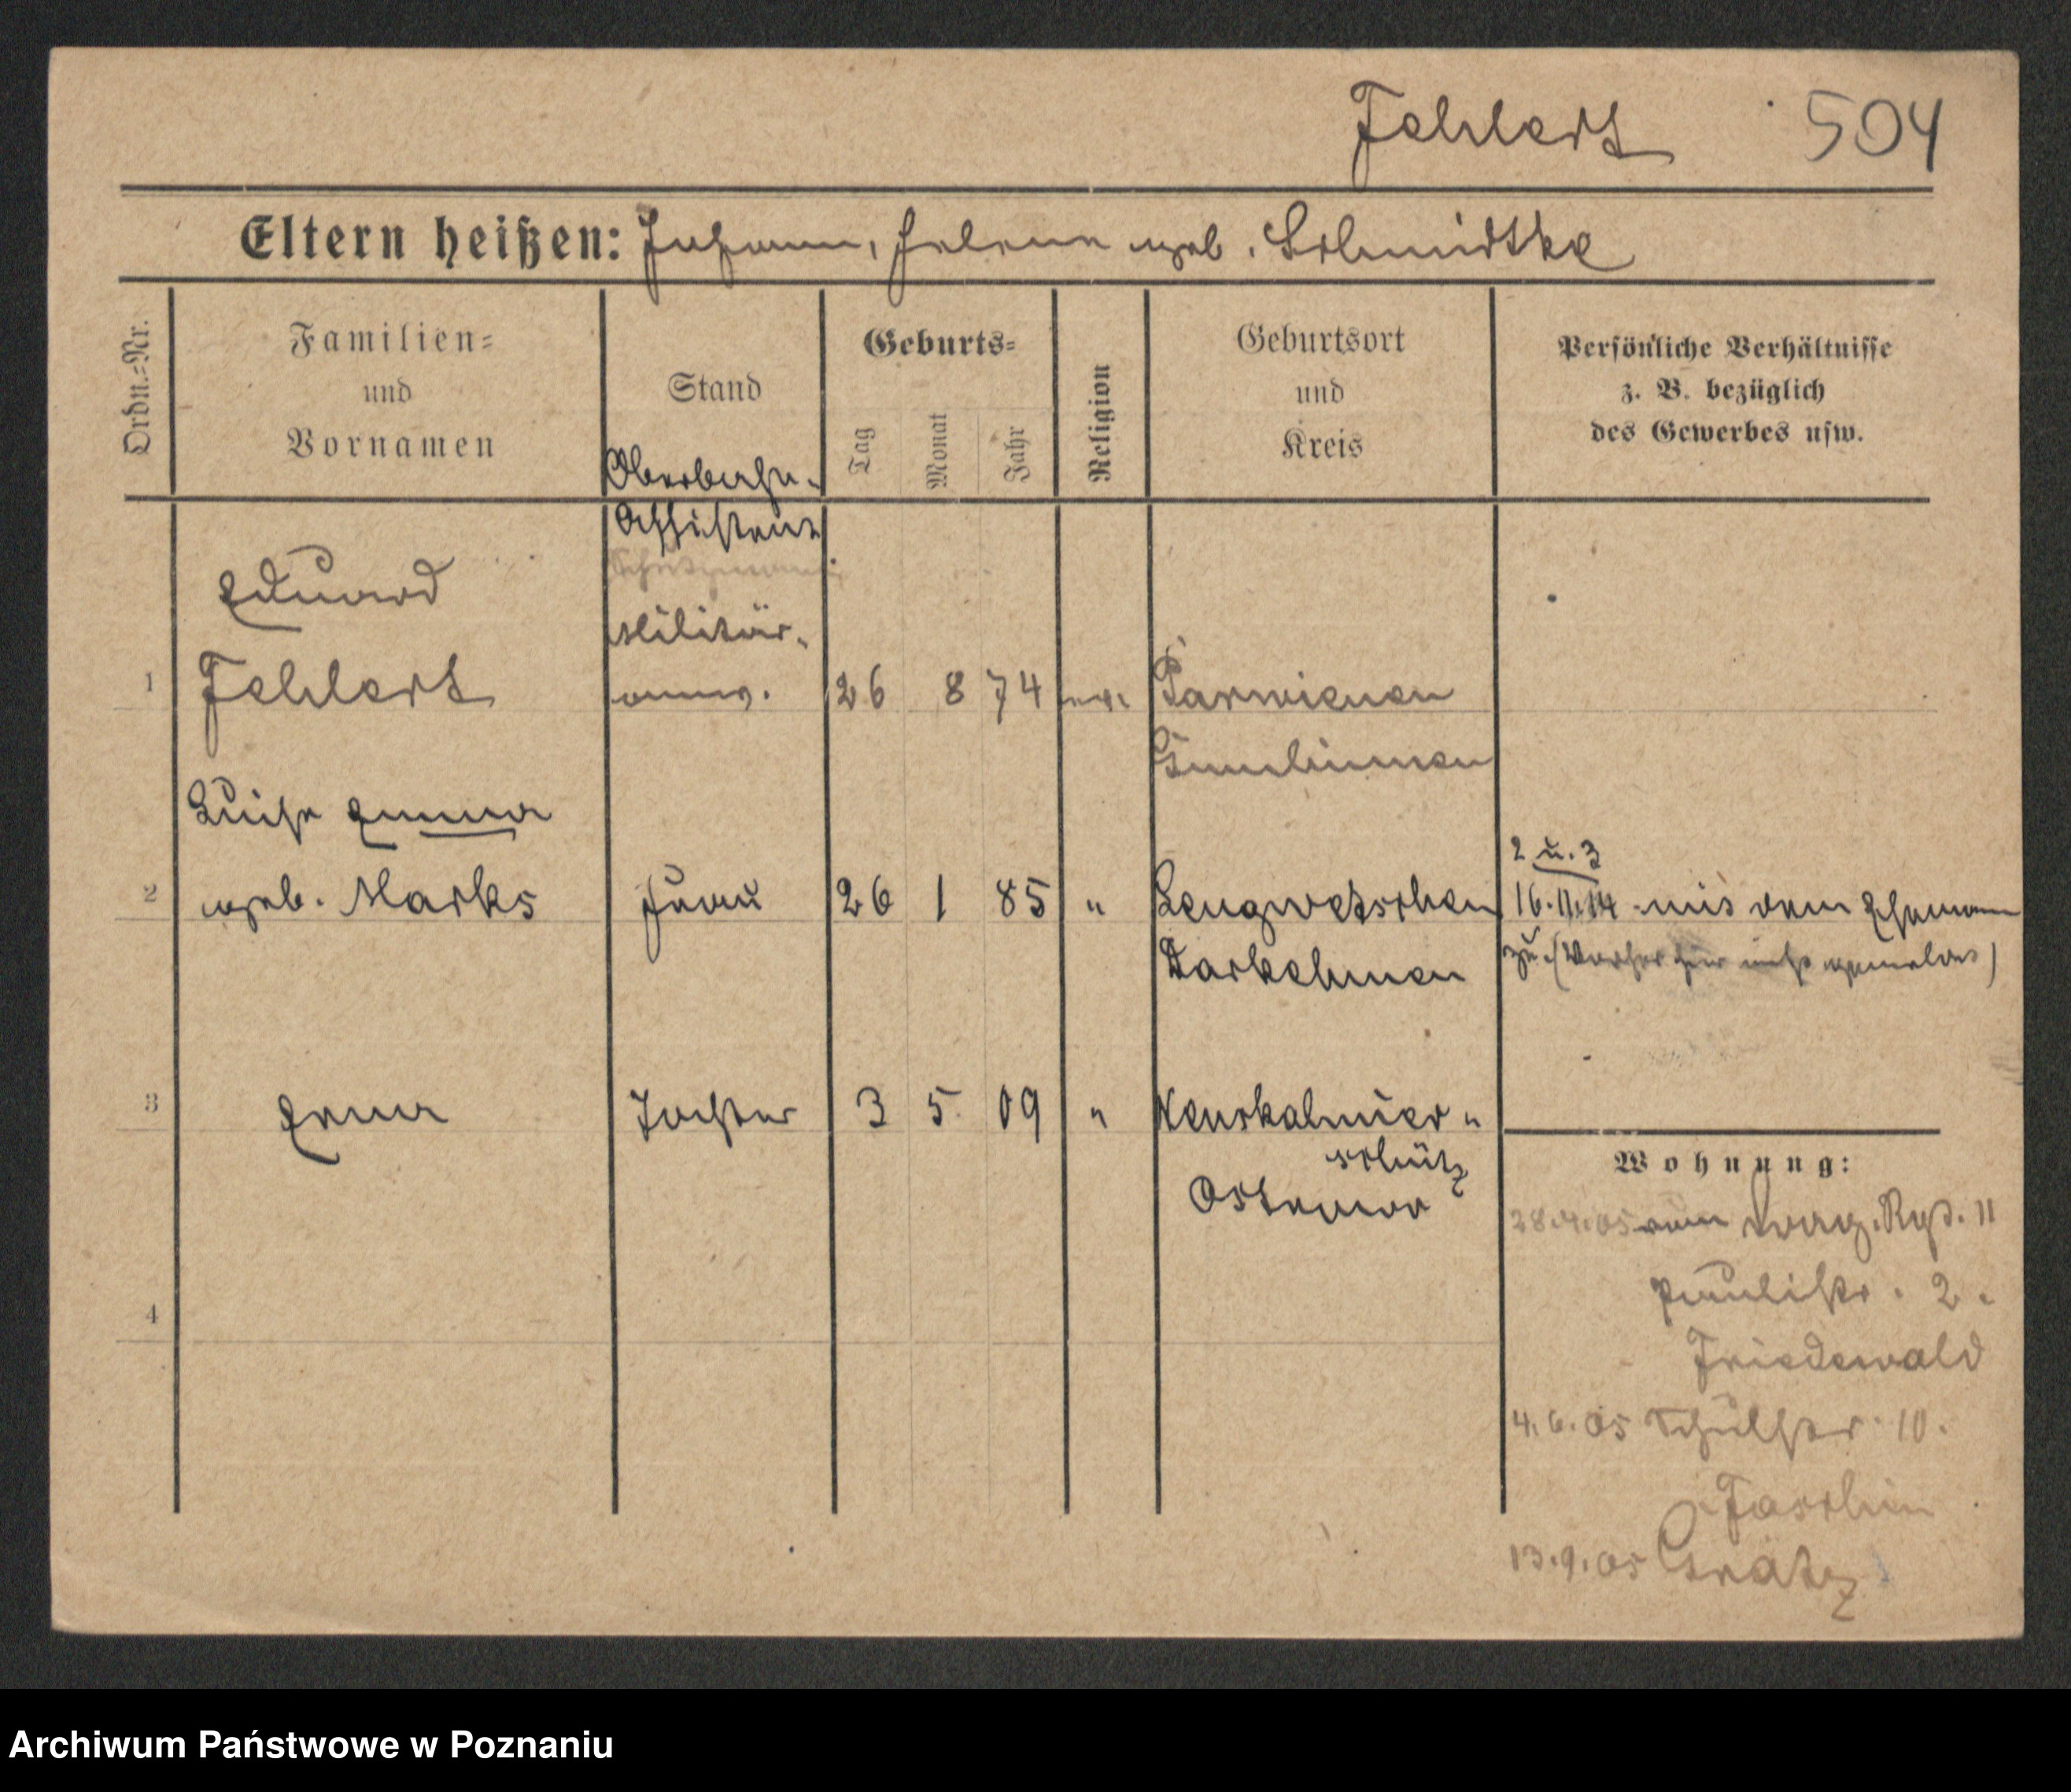 Fehlert 504
Eltern heißen: Johann, Helene geb. Schmidtke
Ordn.-Nr.
Familien-
und
Vornamen
Stand
Geburts-
Tag
Monat
Jahr
Religion
Geburtsort
und
Kreis
Persönliche Verhältnisse
z. B. bezüglich
des Gewerbes usw.
Oberbahn-
Assistent
Schutzmann
Eduard
Militär-
1 Fehlert anw. 26 8 74 ev. Parwienen
Gumbinnen
Luise Emma
2 geb. Marks Frau 26 1 85 " Lengwetschen
Darkehmen
2 u. 3
16.11.14 mit dem Ehemann
zu. (Vorher hier nicht gemeldet)
3 Erna Tochter 3 5 09 " Neuskalmier-
schütz
Ostrowo
4
Wohnung:
28.4.05 vom Drag. Rgt. 11
Paulistr. 2.
Friedewald
4.6.05 10.
Jarschin
13.9.05 Grätz
Archiwum Państwowe w Poznaniu